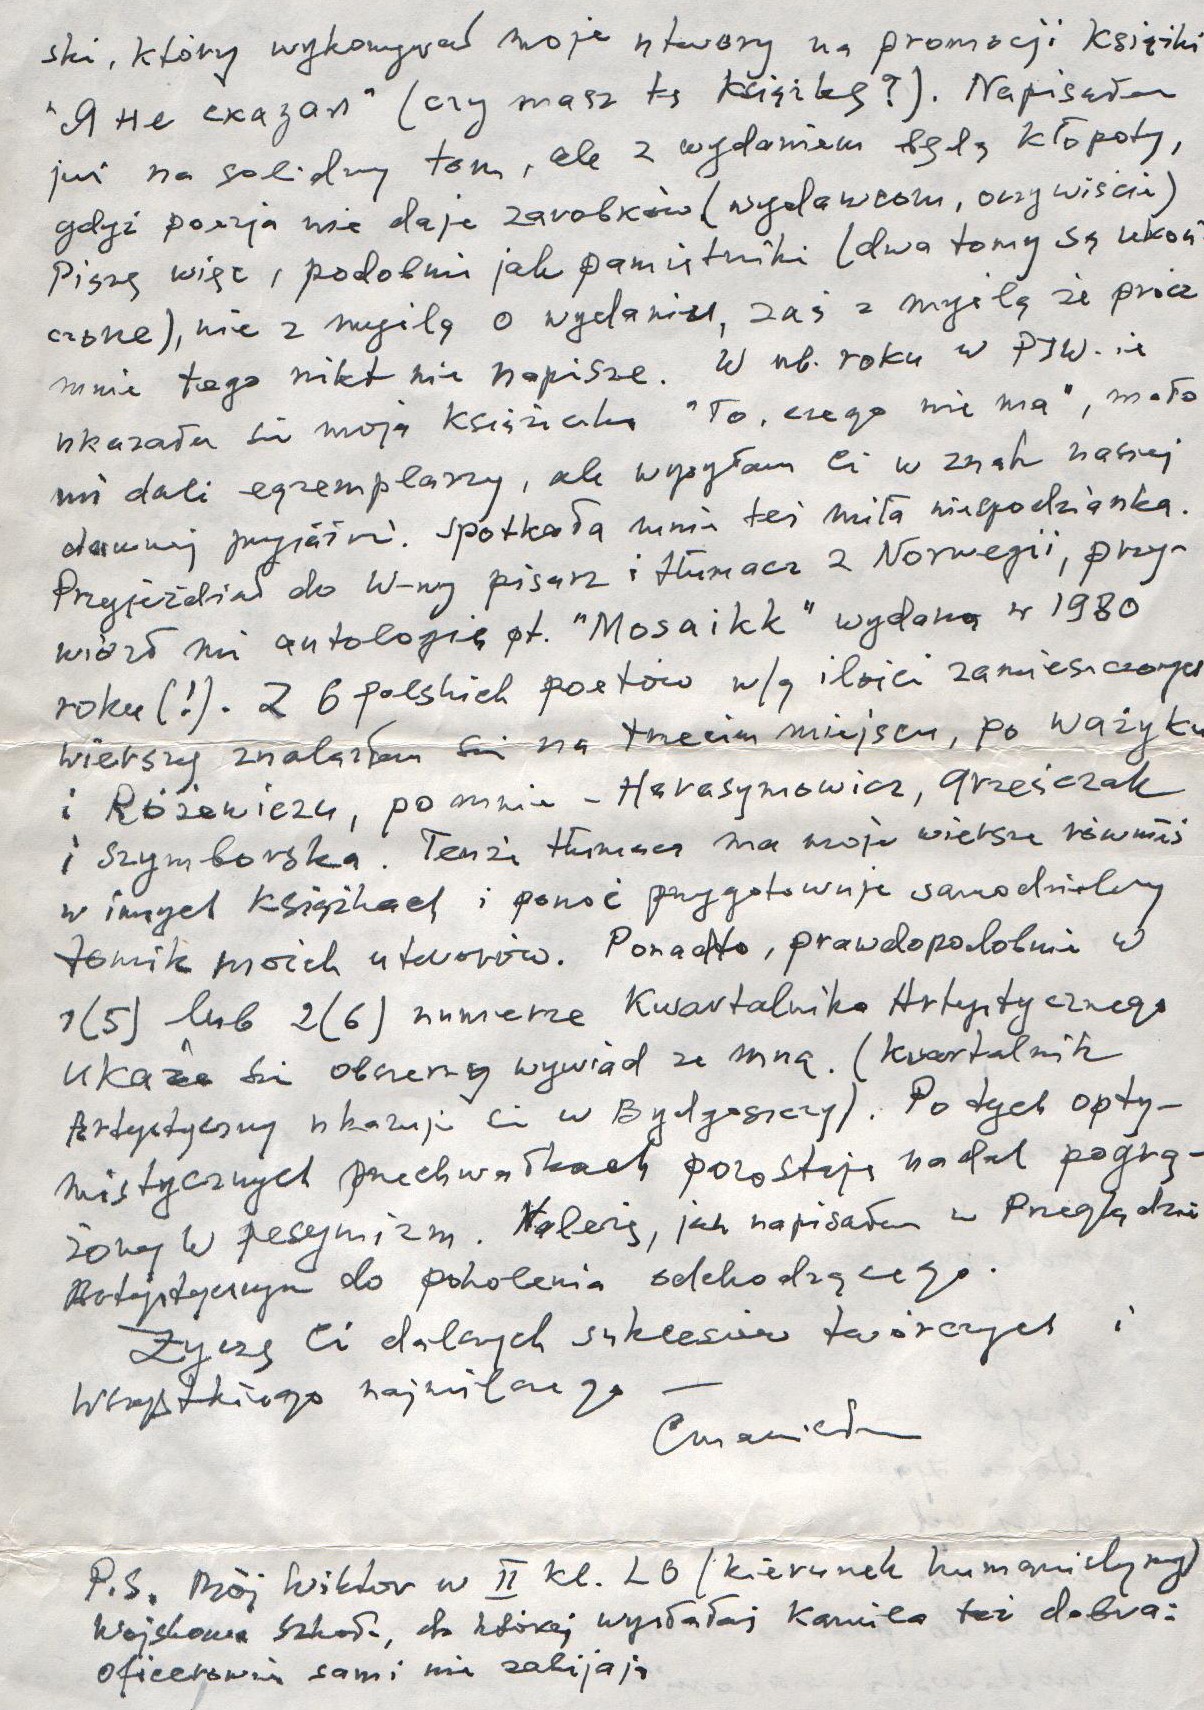 ski, który wykonywał moje utwory na promocji książki
"Я не сказал" (czy masz tę książkę?). Napisałem
już na solidny tom, ale z wydaniem będą kłopoty,
gdyż poezja nie daje zarobków (wydawcom, oczywiście)
Piszę więc, podobnie jak pamiętniki (dwa tomy są ukoń-
czone), nie z myślą o wydaniu, zaś z myślą że prócz
mnie tego nikt nie napisze. W ub. roku w PIW-ie
ukazała się moja książeczka "To, czego nie ma", mało
mi dali egzemplarzy, ale wysyłam Ci w znak naszej
dawnej przyjaźni. Spotkała mnie też miła niespodzianka.
Przyjeżdżał do W-wy pisarz i tłumacz z Norwegii, przy-
wiózł mi antologię pt. "Mosaikk" wydaną w 1980
roku (!). Z 6 polskich poetów w/g ilości zamieszczonych
wierszy znalazłem się na trzecim miejscu, po Ważyku
i Różewiczu, po mnie - Harasymowicz, Grześczak
i Szymborska. Tenże tłumacz ma moje wiersze również
w innych książkach i ponoć przygotowuje samodzielny
tomik moich utworów. Ponadto, prawdopodobnie w
1(5) lub 2(6) numerze Kwartalnika Artystycznego
ukaże się obszerny wywiad ze mną. (Kwartalnik
Artystyczny ukazuje się w Bydgoszczy). Po tych opty-
mistycznych przechwałkach pozostaję nadal pogrą-
żony w pesymizm. Należę, jak napisałem w Przeglądzie
Artystycznym do pokolenia odchodzącego.
Życzę Ci dalszych sukcesów twórczych i
wszystkiego najmilszego —
P.S. Mój Wiktor w II kl. LO (kierunek humanistyczny)
Wojskowa szkoła, do której wysłałaś Kamila też dobra:
oficerowie sami nie zabijają